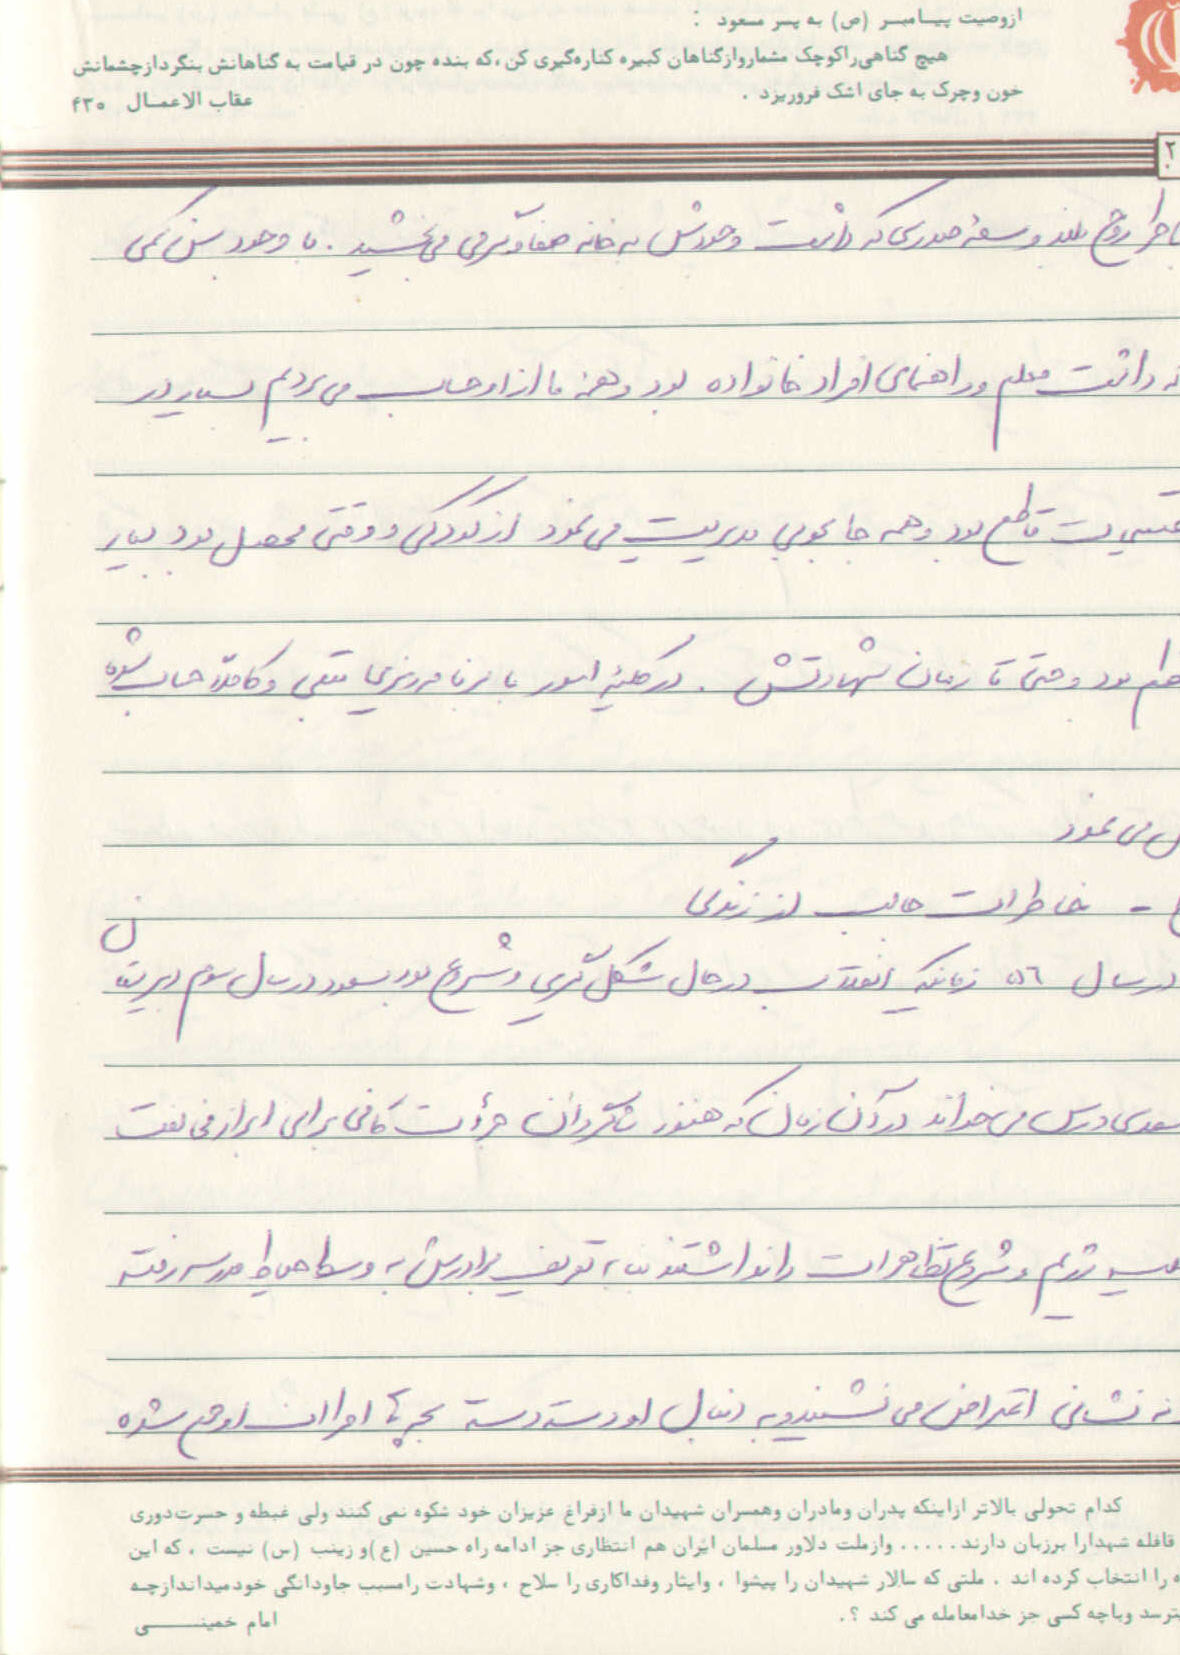 ازوصیت پیـامبـر (ص) به پسر مسعود :
هیچ گناهی‌راکوچک مشماروازگناهان کبیره کناره‌گیری کن ،که بنده چون در قیامت به گناهانش بنگردازچشمانش
خون وچرک به جای اشک فروریزد .
عقاب الاعمـال ۴۳۰
۲
روح بلند و سعهٔ صدری که داشت وجودش به خانه صفا و گرمی می‌بخشید . با وجود سن کمی
داشت معلم و راهنمای افراد خانواده بود و همهٔ ما از او حساب می‌بردیم بسیار در
قاطع بود و همه جا بخوبی مدیریت می‌نمود از کودکی و وقتی محصل بود بسیار
بود و حتی تا زمان شهادتش . در کلیهٔ امور با برنامه‌ریزی قبلی و کاملاً حساب شده
می‌نمود
- خاطرات جالب از زندگی
در سال ٥٦ زمانیکه انقلاب در حال شکل گیری و شروع بود مسعود در سال سوم دبیرستان
سعدی درس می‌خواند در آن زمان که هنوز شاگردان جرأت کافی برای ابراز مخالفت
رژیم و شروع تظاهرات را نداشتند بنا به تعریف برادرش به وسط حیاط مدرسه رفته
نشانی اعتراض می‌نشیند و به دنبال او دسته دسته بچه‌ها اطراف او جمع شده
کدام تحولی بالاتر ازاینکه پدران ومادران وهمسران شهیدان ما ازفراغ عزیزان خود شکوه نمی کنند ولی غبطه و حسرت‌دوری
قافله شهدارا برزبان دارند . . . . . وازملت دلاور مسلمان ایران هم انتظاری جز ادامه راه حسین (ع)و زینب (س) نیست ، که این
را انتخاب کرده اند . ملتی که سالار شهیدان را پیشوا ، وایثار وفداکاری را سلاح ، وشهادت رامسبب جاودانگی خودمیداندازچـه
بترسد وباچه کسی جز خدامعامله می کند ؟.
امام خمینــــی